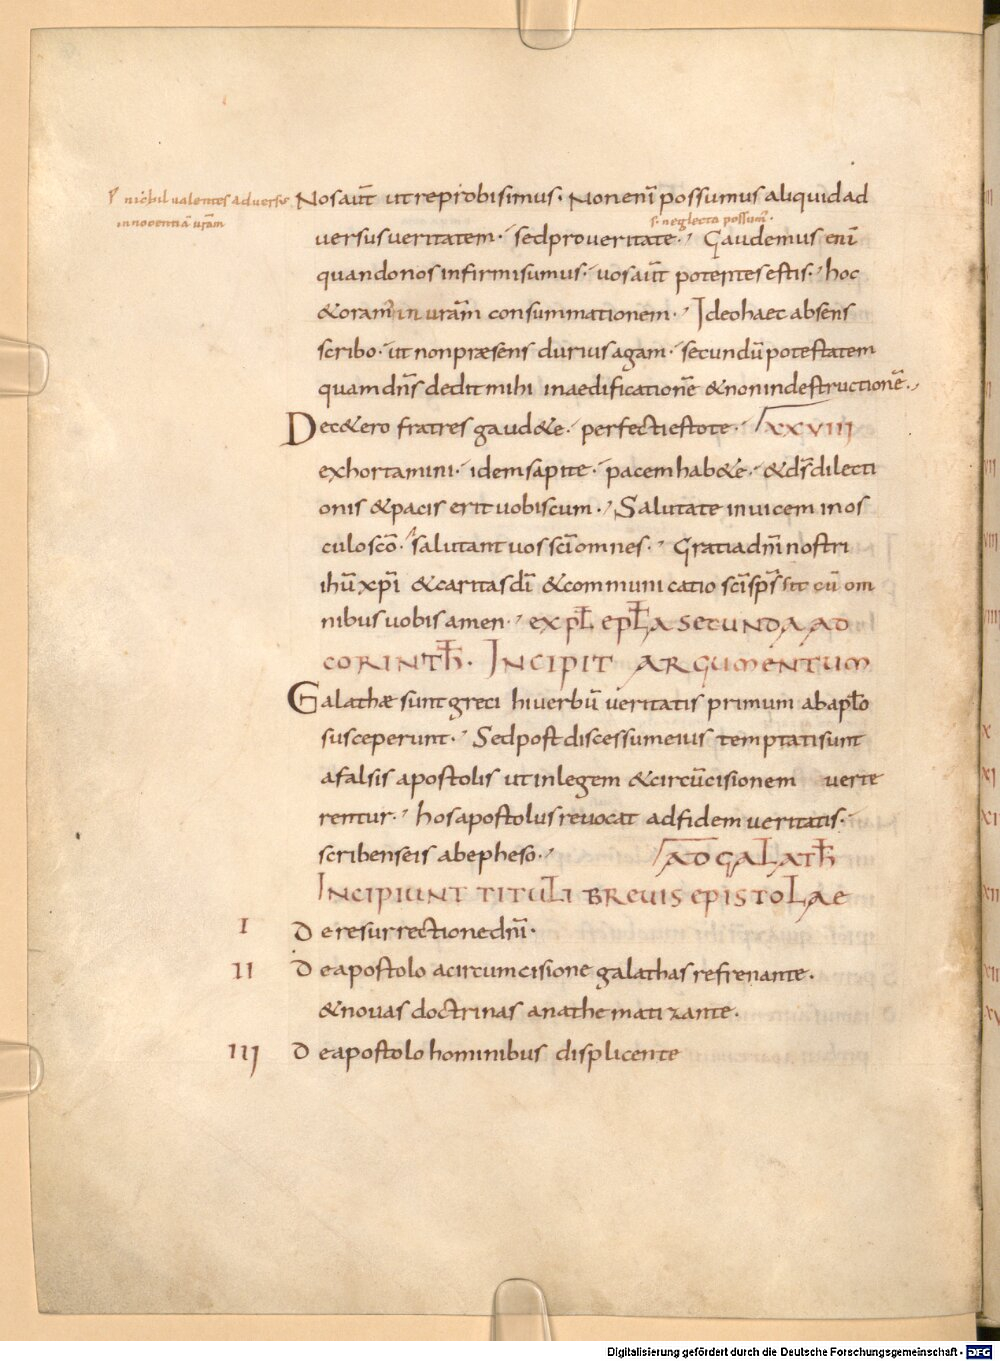 nichil ualentes aduersus
innocentiā uram̄
Nos aut̄ ut reprobi simus· Non eni̅ possumus aliquid ad
s· neglecta possum̄·
uersus ueritatem· sed pro ueritate· Gaudemus eni̅
quando nos infirmi sumus· uos aut̄ potentes estis· hoc
&oram̄ in uram̄ consummationem· Ideo haec absens
scribo· ut non præsens durius agam· secundū potestatem
quam dn̄s dedit mihi in aedificationē & non in destructionē·
De c&ero fratres gaud&e· perfecti estote· XXVIII
exhortamini· idem sapite· pacem hab&e· & ds̄ dilecti
onis & pacis erit uobiscum· Salutate inuicem in os
culo scō· salutant uos sci̅ omnes· Gratia dni̅ nostri
ihū xpi̅ & caritas di̅ & communicatio sci̅ sps̄ sit cū om
nibus uobis amen· expl̄ epl̄a secunda ad
corinth̄· Incipit argumentum
Galathæ sunt greci hi uerbū ueritatis primum ab apl̄o
susceperunt· Sed post discessum eius temptati sunt
a falsis apostolis ut in legem & circūcisionem uerte
rentur· hos apostolus reuocat ad fidem ueritatis·
scribens eis ab epheso· ad galath̄
Incipiunt tituli breuis epistolae
I De resurrectione dni̅·
II De apostolo a circumcisione galathas refrenante·
& nouas doctrinas anathematizante·
III De apostolo hominibus displicente
Digitalisierung gefördert durch die Deutsche Forschungsgemeinschaft - DFG